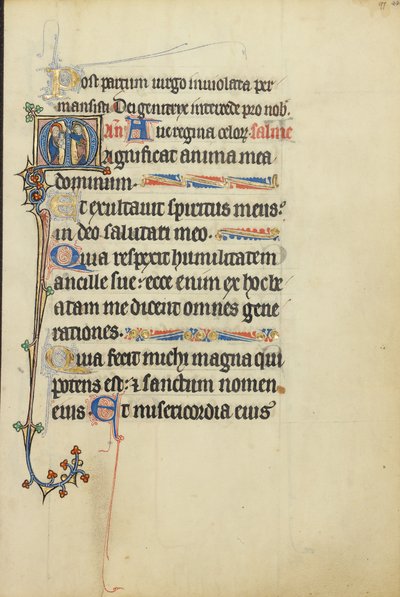 Post partum virgo inviolata per
mansisti Dei genitrix intercede pro nob.
añ Ave regina celor, salme
Magnificat anima mea
dominum.
Et exultavit spiritus meus:
in deo salutari meo.
Quia respexit humilitatem
ancille sue: ecce enim ex hoc be
atam me dicent omnes gene
rationes.
Quia fecit michi magna qui
potens est: & sanctum nomen
eius Et misericordia eius